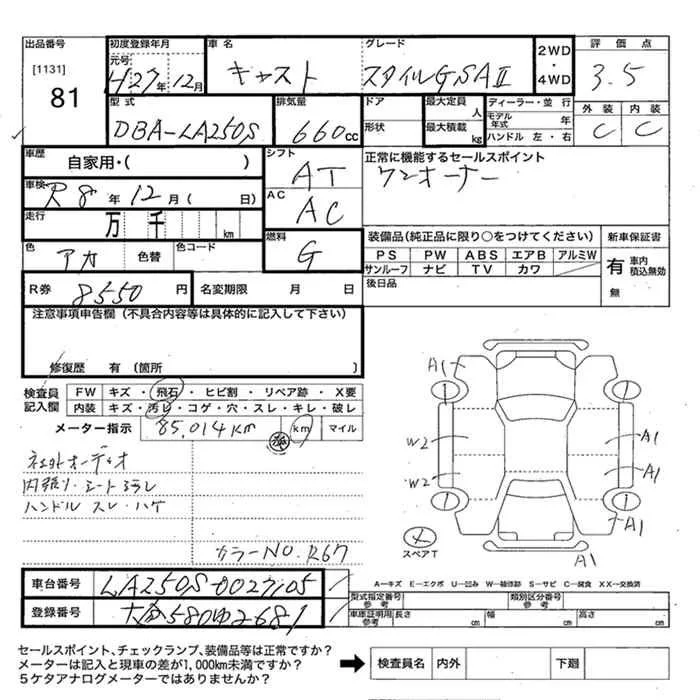 出品番号 初度登録年月 車名 グレード 2WD・4WD 評価点
[1131] 元号
81 H27年12月 キャスト スタイルGSAⅡ 3.5
型式 排気量 ドア 最大定員 人 ディーラー・並行 外装 内装
DBA-LA250S 660cc 形状 最大積載 kg モデル年式 年 C C
ハンドル 左・右
車歴 シフト 正常に機能するセールスポイント
自家用・( ) AT ワンオーナー
車検 R8年12月( 日) AC
走行 万 千 km AC
色 アカ 色替 色コード 燃料 G 装備品(純正品に限り○をつけてください) 新車保証書
PS PW ABS エアB アルミW 有 車内積込無効
サンルーフ ナビ TV カワ 無
R券 8550円 名変期限 月 日 後日品
注意事項申告欄(不具合内容等は具体的に記入して下さい)
修復歴 有(箇所 )
検査員記入欄 FW キズ・飛石・ヒビ割・リペア跡・X要
内装 キズ・汚レ・コゲ・穴・スレ・キレ・破レ
メーター指示 85,014km km マイル
内張り・シート ヨゴレ
ハンドル スレ・ハゲ
カラーNO. R67
A1
1 1
W2 A1
W2 A1
1 1
A1
A1
スペアT
車台番号 LA250S-0027105
登録番号 580 2681
A―キズ E―エクボ U―凹み W―補修跡 S―サビ C―腐食 XX―交換済
型式指定番号 参考 類別区分番号 参考
車庫証明用 参考 長さ cm 幅 cm 高さ cm
セールスポイント、チェックランプ、装備品等は正常ですか?
メーターは記入と現車の差が1,000km未満ですか?
5ケタアナログメーターではありませんか?
検査員名 内外 下廻